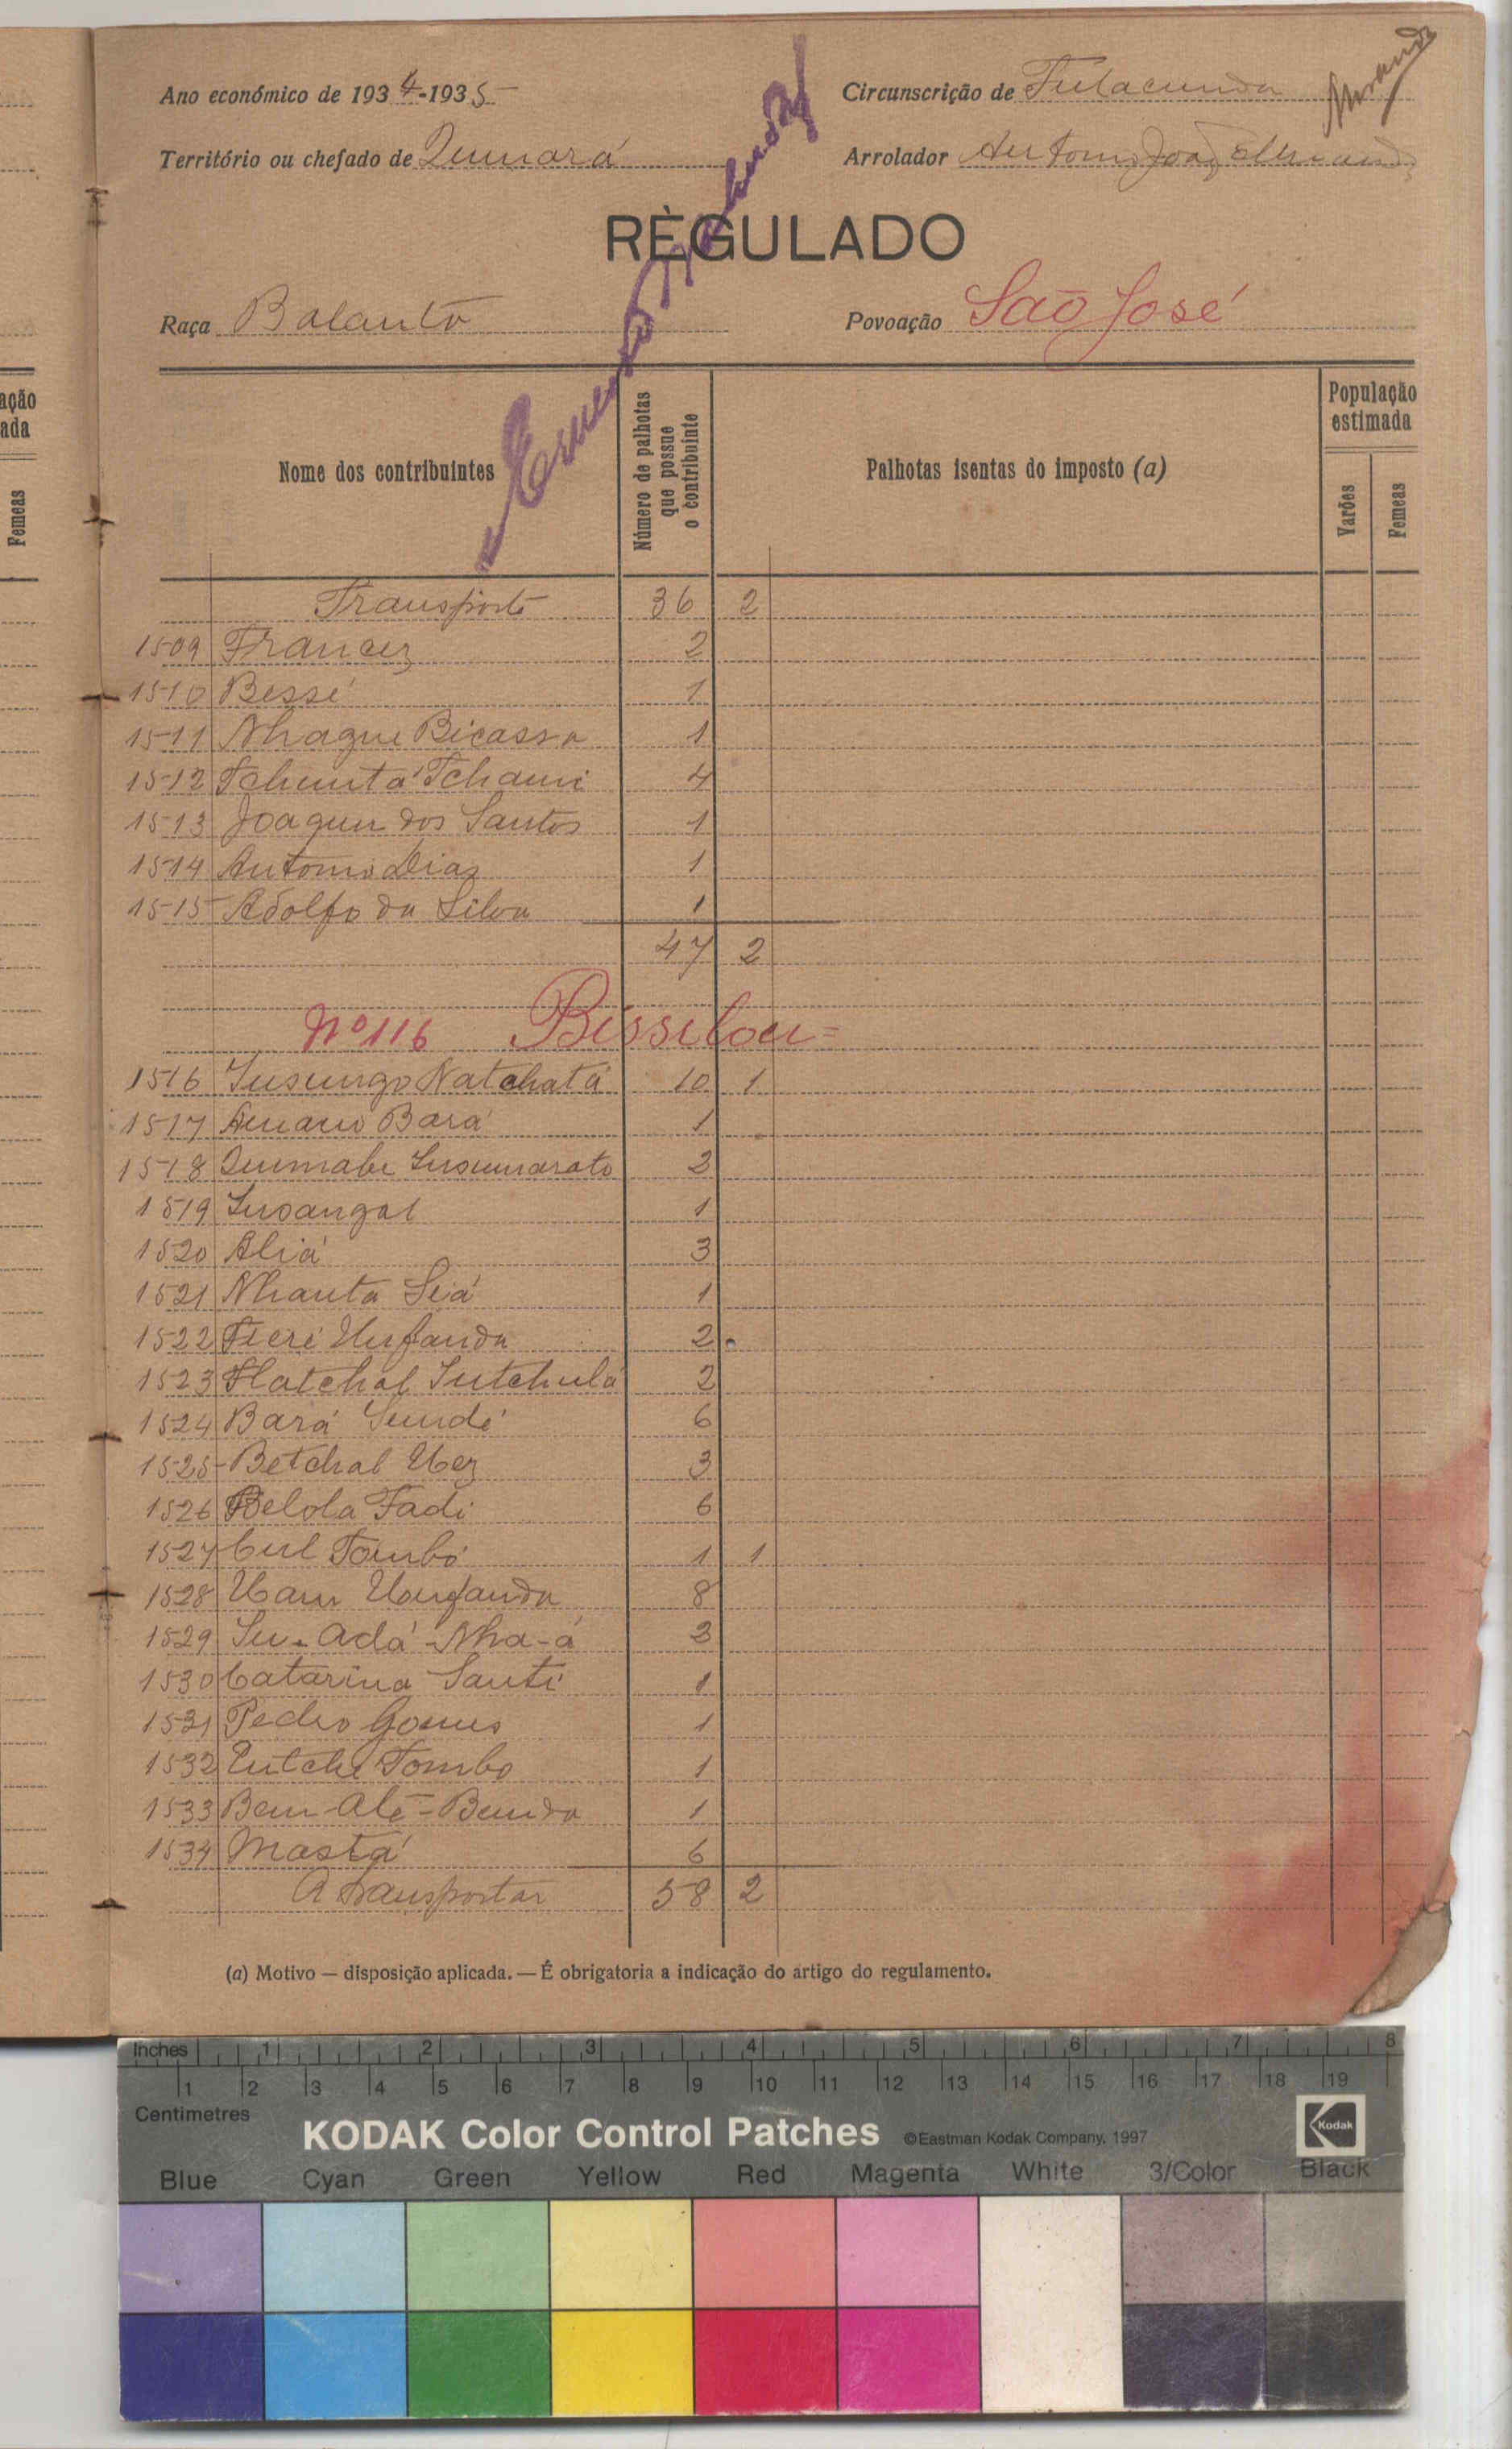 Ano económico de 1934-1935
Circunscrição de Fulacunda
Território ou chefado de Quinará
Arrolador Antonio João
RÈGULADO
Raça Balanta
Povoação São José
ação
ada
Femeas
Nome dos contribuintes
Número de palhotas que possue o contribuinte
Palhotas isentas do imposto (a)
População estimada
Varões
Femeas
Transporte 36 2
1509 Francez 2
1510 Bessé 1
1511 Nhague Bicassa 1
1512 Tchuntá Tchami 4
1513 Joaquim dos Santos 1
1514 Antonio Dias 1
1515 Adolfo da Silva 1
47 2
Nº 116 Bissilou=
1516 Natchatá 10 1
1517 Bará 1
1518 2
1519 1
1520 Aliá 3
1521 Nhanta Siá 1
1522 2
1523 2
1524 Bará Sundé 6
1525 Betchal 3
1526 Belola Fadi 6
1527 Cul Tombó 1 1
1528 8
1529 Nha-á 3
1530 Catarina Santi 1
1531 Pedro Gomes 1
1532 Tombo 1
1533 1
1534 Mastá 6
A transportar 58 2
(a) Motivo — disposição aplicada. — É obrigatoria a indicação do artigo do regulamento.
Inches 1 2 3 4 5 6 7 8
1 2 3 4 5 6 7 8 9 10 11 12 13 14 15 16 17 18 19
Centimetres
KODAK Color Control Patches ©Eastman Kodak Company, 1997 Kodak
Blue Cyan Green Yellow Red Magenta White 3/Color Black